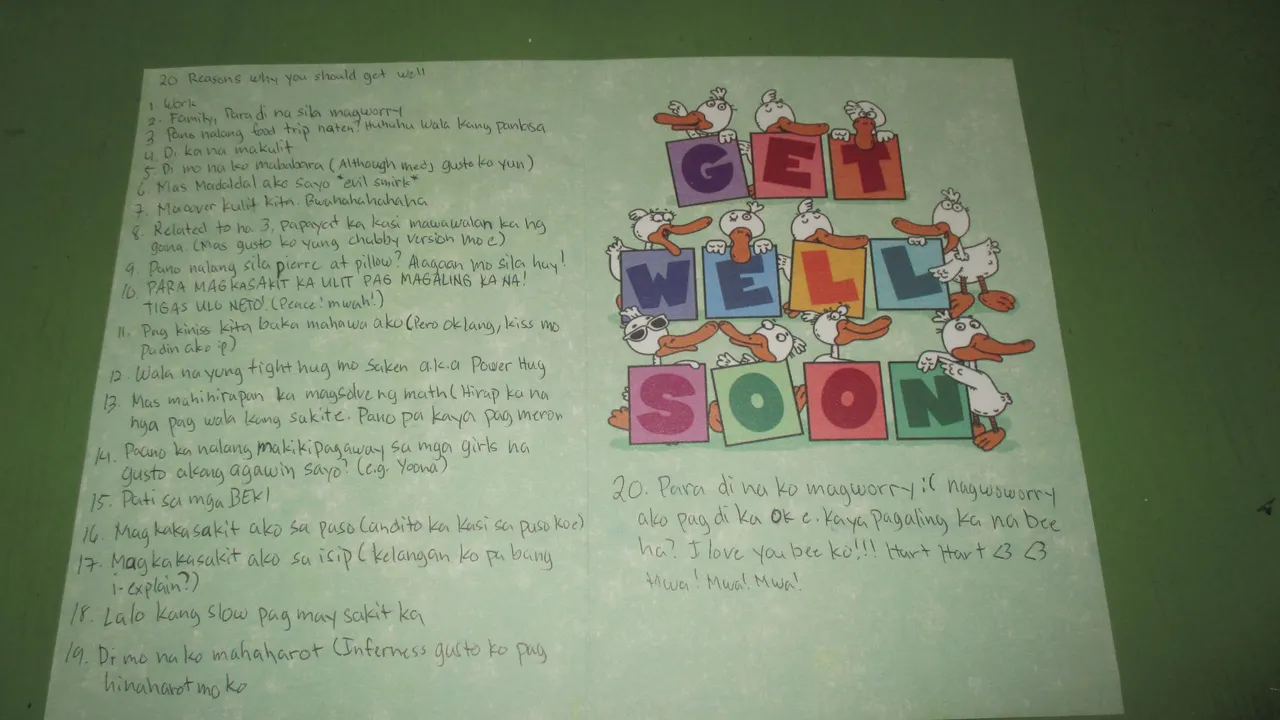 20 Reasons why you should get well
1. Work
2. Family, Para di na sila magworry
3. Pano nalang food trip naten? Huhuhu wala kang panlasa
4. Di ka na makulit
5. Di mo na ko mababara (Although medj gusto ko yun)
6. Mas Madaldal ako sayo *evil smirk*
7. Maoover kulit kita. Bwahahahahaha
8. Related to no. 3, papayat ka kasi mawawalan ka ng
gana. (Mas gusto ko yung chubby version mo e)
9. Pano nalang sila pierre at pillow? Alagaan mo sila huy!
10. PARA MAGKASAKIT KA ULIT PAG MAGALING KA NA!
TIGAS ULO NETO! (Peace! mwah!)
11. Pag kiniss kita baka mahawa ako (Pero ok lang, kiss mo
padin ako :p)
12. Wala na yung tight hug mo saken a.k.a Power Hug
13. Mas mahihirapan ka magsolve ng math (Hirap ka na
nga pag wala kang sakit e. Pano pa kaya pag meron
14. Paano ka nalang makikipagaway sa mga girls na
gusto akong agawin sayo? (e.g. Yoona)
15. Pati sa mga BEKI
16. Magkakasakit ako sa puso (andito ka kasi sa puso ko e)
17. Magkakasakit ako sa isip (kelangan ko pa bang
i-explain?)
18. Lalo kang slow pag may sakit ka
19. Di mo na ko mahaharot (Inferness gusto ko pag
hinaharot mo ko
GET
WELL
SOON
20. Para di na ko magworry :( nagwoworry
ako pag di ka ok e. kaya pagaling ka na bee
ha? I love you bee ko!!! Hart Hart <3 <3
Mwa! Mwa! Mwa!